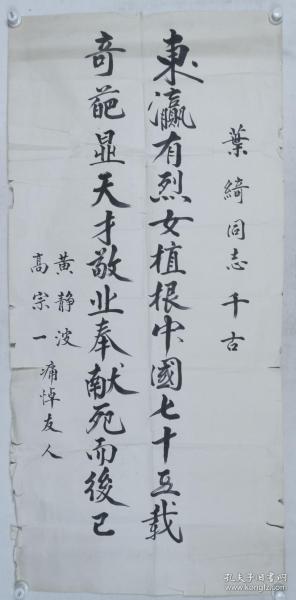 葉綺同志千古
東瀛有烈女植根中國七十五載
奇葩显天才敬业奉献死而後已
黄静波
高宗一
痛悼友人
孔夫子旧书网